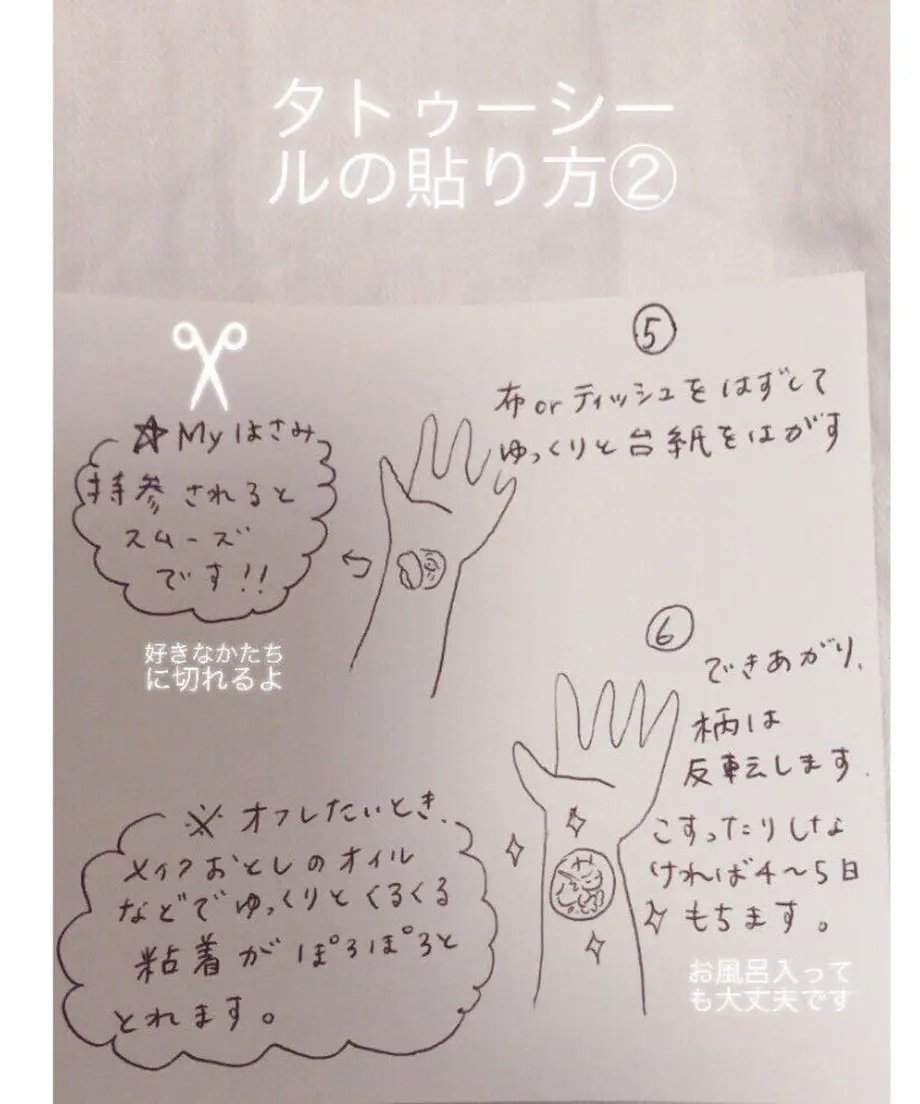 タトゥーシー
ルの貼り方②
☆Myはさみ
持参されると
スムーズ
です!!
好きなかたち
に切れるよ
⑤
布orティッシュをはずして
ゆっくりと台紙をはがす
⑥
できあがり、
柄は
反転します.
こすったりしな
ければ4~5日
もちます。
お風呂入って
も大丈夫です
※オフしたいとき、
メイクおとしのオイル
などでゆっくりとくるくる
粘着がぽろぽろと
とれます。